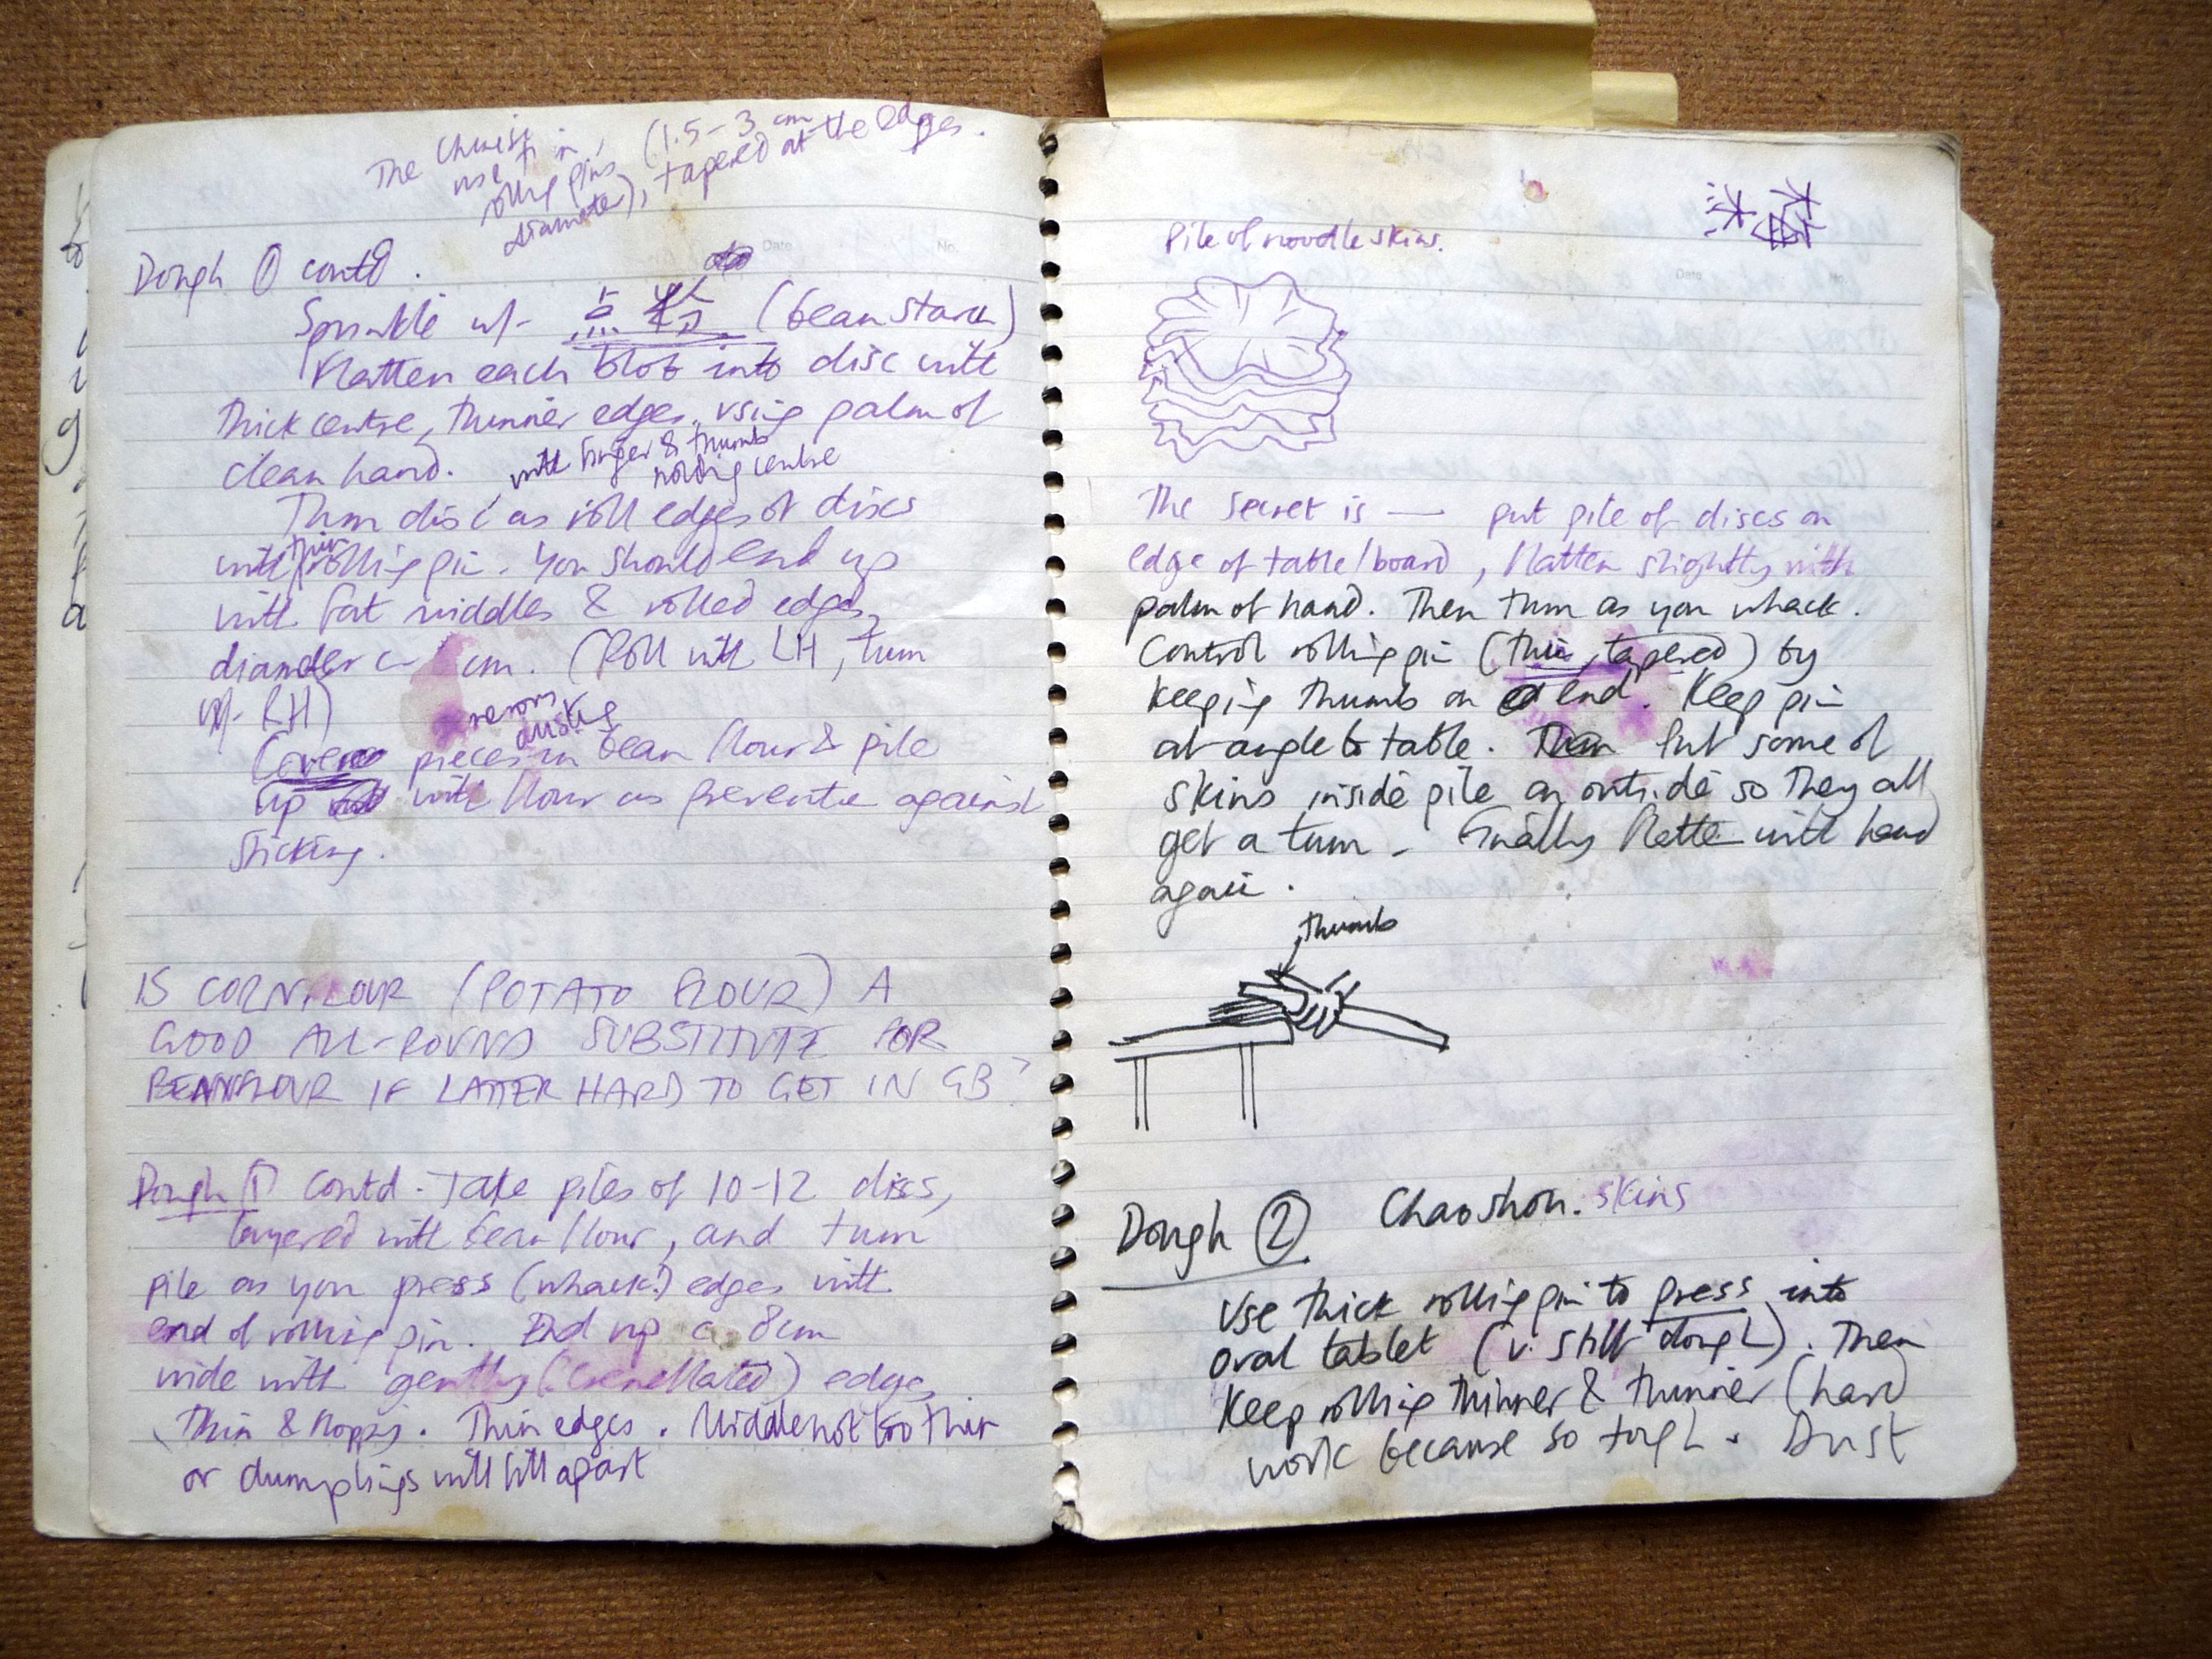 The Chinese
use thin,
rolling pins (1.5-3 cm
diameter), tapered at the edges.
Dough ① contd.
Sprinkle w/- (bean starch)
Flatten each blob into disc with
thick centre, thinner edges, using palm of
clean hand.
with finger & thumb
holding centre
Turn disc as roll edges of discs
with thin rolling pin. You should end up
with fat middles & rolled edges,
diameter c cm. (Roll with LH, turn
w/- RH)
dusking
Cover pieces in bean flour & pile
up with flour as preventive against
sticking.
IS CORNFLOUR (POTATO FLOUR) A
GOOD ALL-ROUND SUBSTITUTE FOR
BEANFLOUR IF LATTER HARD TO GET IN GB?
Dough ① contd. Take piles of 10-12 discs,
layered with bean flour, and turn
pile as you press (whack!) edges with
end of rolling pin. End up c. 8cm
wide with gently (crenellated) edges.
Thin & floppy. Thin edges. Middle not too thin
or dumplings will fall apart
Pile of noodle skins.
The secret is — put pile of discs on
edge of table/board, flatten slightly with
palm of hand. Then turn as you whack.
Control rolling pin (thin, tapered) by
keeping thumb on end. Keep pin
at angle to table. Put some of
skins inside pile on outside so they all
get a turn - Finally flatten with hand
again.
thumb
Dough ② Chaoshou. skins
Use thick rolling pin to press into
oval tablet (v. stiff dough). Then
keep rolling thinner & thinner (hard
work because so tough. Dust